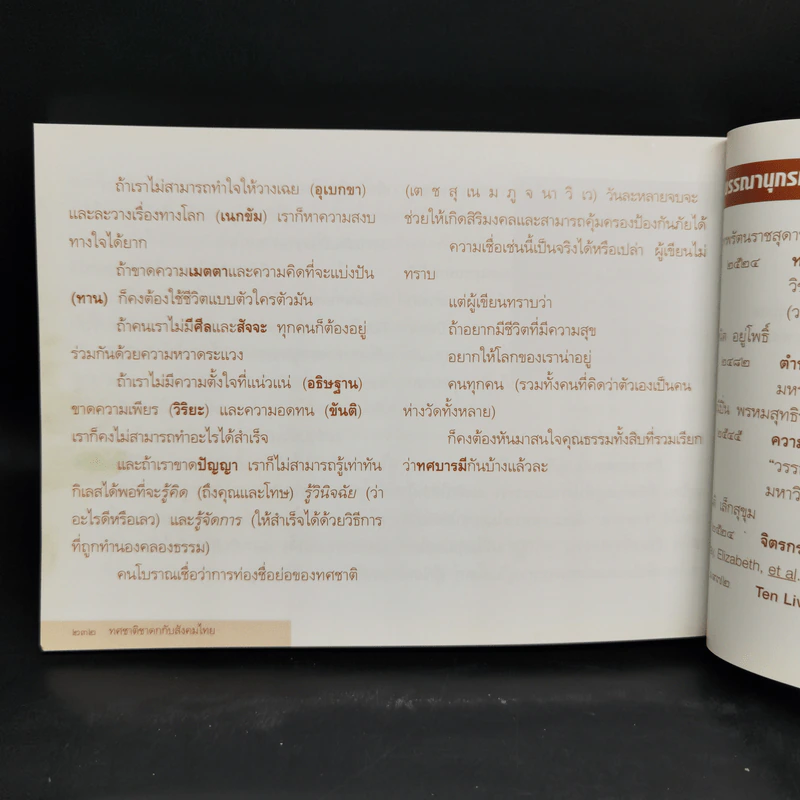 ถ้าเราไม่สามารถทำใจให้วางเฉย (อุเบกขา)
และละวางเรื่องทางโลก (เนกขัม) เราก็หาความสงบ
ทางใจได้ยาก
ถ้าขาดความเมตตาและความคิดที่จะแบ่งปัน
(ทาน) ก็คงต้องใช้ชีวิตแบบตัวใครตัวมัน
ถ้าคนเราไม่มีศีลและสัจจะ ทุกคนก็ต้องอยู่
ร่วมกันด้วยความหวาดระแวง
ถ้าเราไม่มีความตั้งใจที่แน่วแน่ (อธิษฐาน)
ขาดความเพียร (วิริยะ) และความอดทน (ขันติ)
เราก็คงไม่สามารถทำอะไรได้สำเร็จ
และถ้าเราขาดปัญญา เราก็ไม่สามารถรู้เท่าทัน
กิเลสได้พอที่จะรู้คิด (ถึงคุณและโทษ) รู้วินิจฉัย (ว่า
อะไรดีหรือเลว) และรู้จัดการ (ให้สำเร็จได้ด้วยวิธีการ
ที่ถูกทำนองคลองธรรม)
คนโบราณเชื่อว่าการท่องชื่อย่อของทศชาติ
๒๓๒ ทศชาติชาดกกับสังคมไทย
(เต ช สุ เน ม ภู จ นา วิ เว) วันละหลายจบจะ
ช่วยให้เกิดสิริมงคลและสามารถคุ้มครองป้องกันภัยได้
ความเชื่อเช่นนี้เป็นจริงได้หรือเปล่า ผู้เขียนไม่
ทราบ
แต่ผู้เขียนทราบว่า
ถ้าอยากมีชีวิตที่มีความสุข
อยากให้โลกของเราน่าอยู่
คนทุกคน (รวมทั้งคนที่คิดว่าตัวเองเป็นคน
ห่างวัดทั้งหลาย)
ก็คงต้องหันมาสนใจคุณธรรมทั้งสิบที่รวมเรียก
ว่าทศบารมีกันบ้างแล้วละ
รรณานุกรม
พรัตนราชสุดา
๒๕๒๔
อยู่โพธิ์
๒๔๘๒ ตำ
มห
พรหมสุทธิ
๒๕๔๕ ความ
"วรร
มหาวิ
เล็กสุขุม
จิตรกร
Elizabeth, et al.
Ten Liv